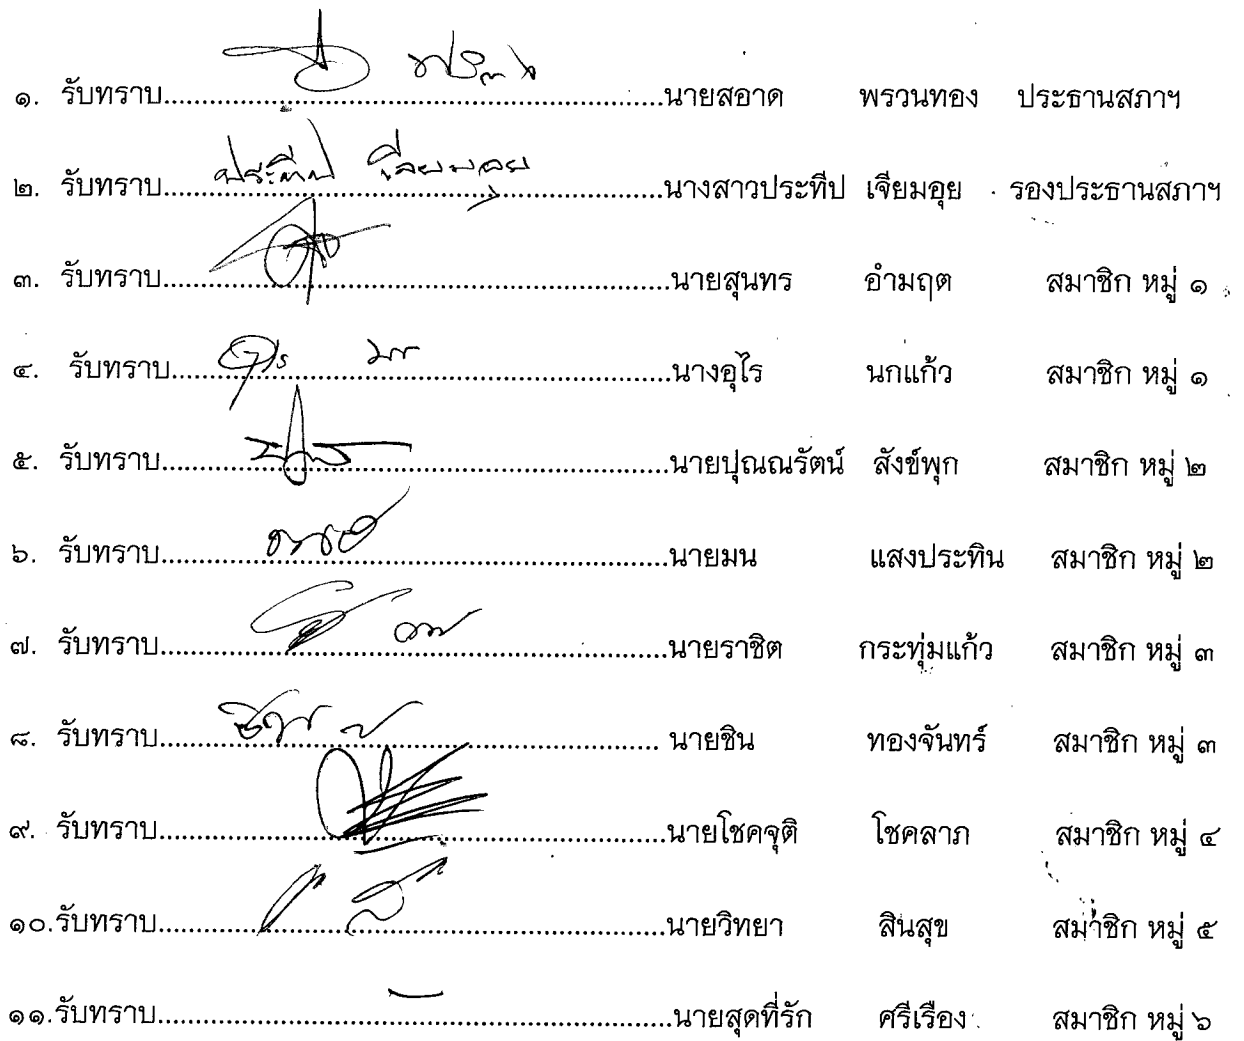 ๑. รับทราบ..........นายสอาด พรวนทอง ประธานสภาฯ
๒. รับทราบ..........ประทีป เจียมอุย..........นางสาวประทีป เจียมอุย รองประธานสภาฯ
๓. รับทราบ..........นายสุนทร อำมฤต สมาชิก หมู่ ๑
๔. รับทราบ..........นางอุไร นกแก้ว สมาชิก หมู่ ๑
๕. รับทราบ..........นายปุณณรัตน์ สังข์พุก สมาชิก หมู่ ๒
๖. รับทราบ..........นายมน แสงประทิน สมาชิก หมู่ ๒
๗. รับทราบ..........นายราชิต กระทุ่มแก้ว สมาชิก หมู่ ๓
๘. รับทราบ..........นายชิน ทองจันทร์ สมาชิก หมู่ ๓
๙. รับทราบ..........นายโชคจุติ โชคลาภ สมาชิก หมู่ ๔
๑๐.รับทราบ..........นายวิทยา สินสุข สมาชิก หมู่ ๕
๑๑.รับทราบ..........นายสุดที่รัก ศรีเรือง สมาชิก หมู่ ๖